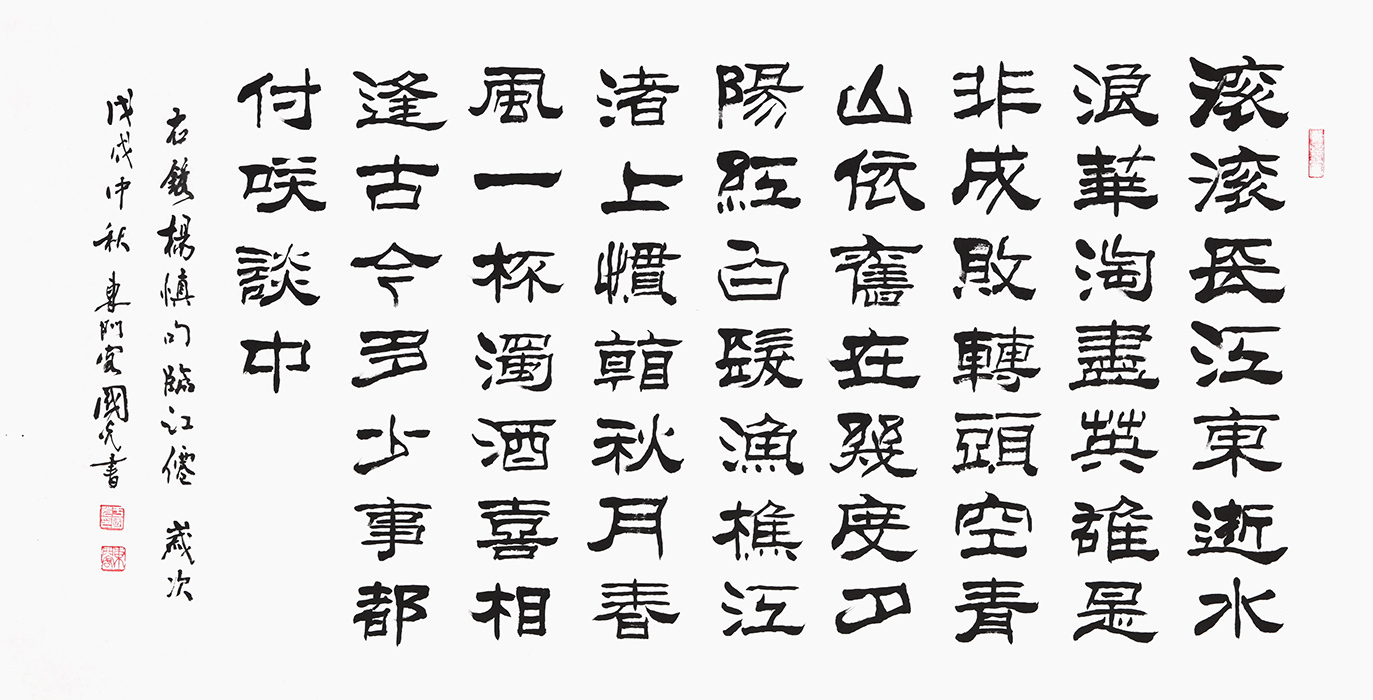 滚滚長江東逝水
浪華淘盡英雄是
非成敗轉頭空青
山依舊在幾度夕
陽紅白髮漁樵江
渚上慣看秋月春
風一杯濁酒喜相
逢古今多少事都
付咲談中
右錄楊慎句臨江僊 歲次
戊戌中秋 東 國光書